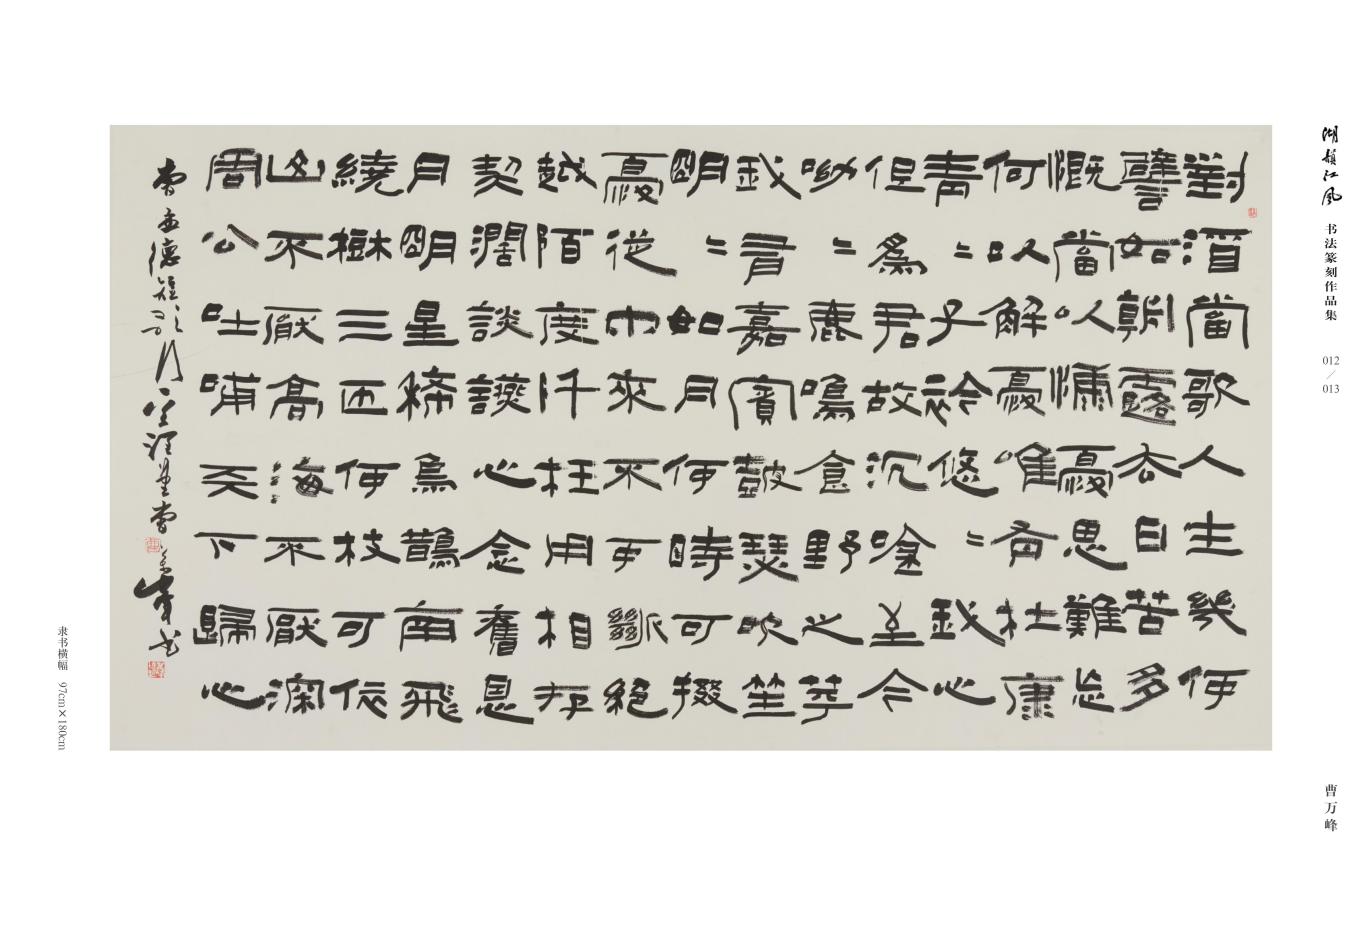 湖韻江風 书法篆刻作品集 012/013
曹万峰
對酒當歌人生幾何
譬如朝露去日苦多
慨當以慷憂思難忘
何以解憂唯有杜康
青〻子衿悠〻我心
但為君故沉唫至今
呦〻鹿鳴食野之苹
我有嘉賓鼓瑟吹笙
明〻如月何時可掇
憂從中來不可斷絕
越陌度阡枉用相存
契闊談讌心念舊恩
月明星稀烏鵲南飛
繞樹三匝何枝可依
山不厭高海不厭深
周公吐哺天下歸心
曹孟德短歌行 曹萬峰書
隶书横幅 97cm×180cm